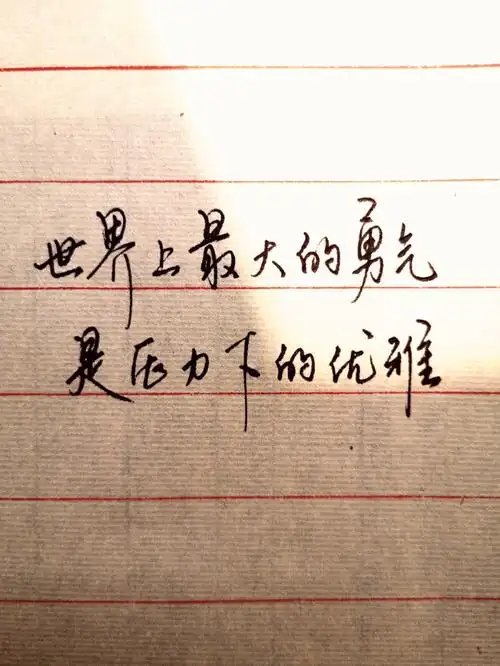 世界上最大的勇气
是压力下的优雅